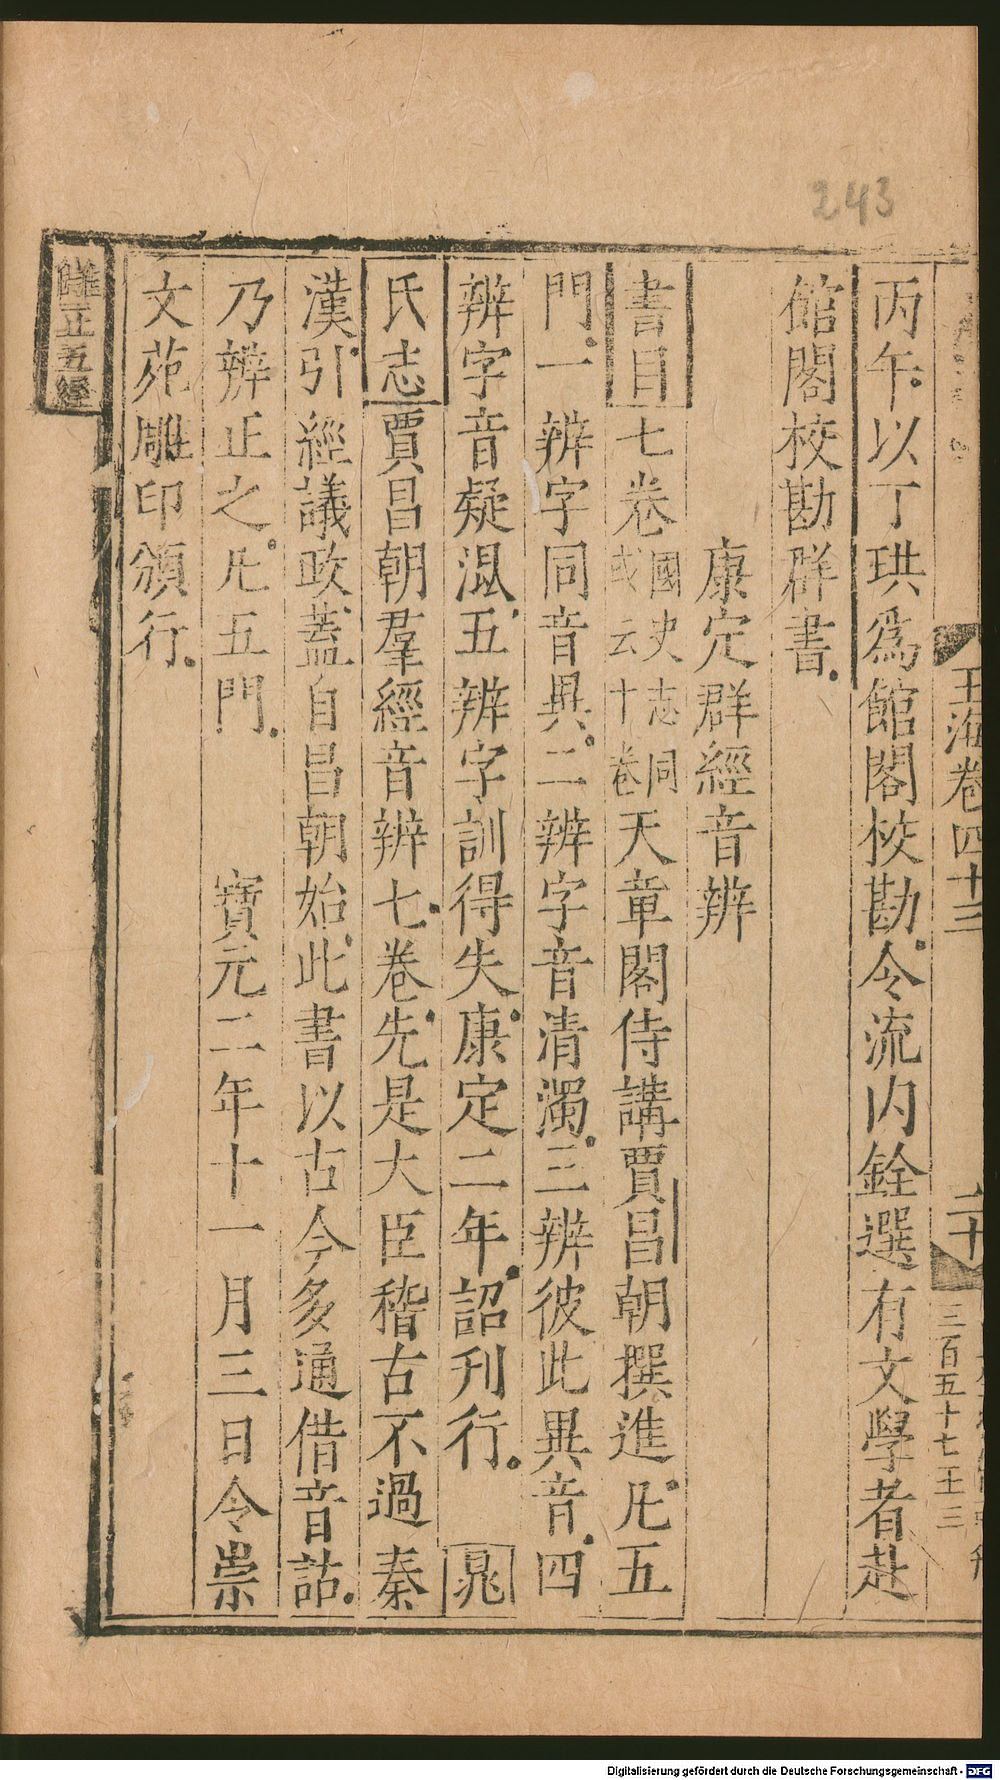 243
玉海卷四十三
二十
三百五十七王三
丙午以丁珙爲館閣校勘令流内銓選有文學者赴
館閣校勘群書
康定群經音辨
書目七卷國史志同或云十卷天章閣侍講賈昌朝撰進凡五
門一辨字同音異二辨字音清濁三辨彼此異音四
辨字音疑混五辨字訓得失康定二年詔刊行晁
氏志賈昌朝羣經音辨七卷先是大臣稽古不過秦
漢引經議政蓋自昌朝始此書以古今多通借音詁
乃辨正之凡五門 寶元二年十一月三日令崇
文苑雕印頒行
讎正五經
Digitalisierung gefördert durch die Deutsche Forschungsgemeinschaft - DFG